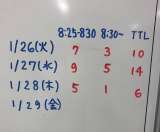 8:25-830 8:30~ TTL
1/26(火) 7 3 10
1/27(水) 9 5 14
1/28(木) 5 1 6
1/29(金)